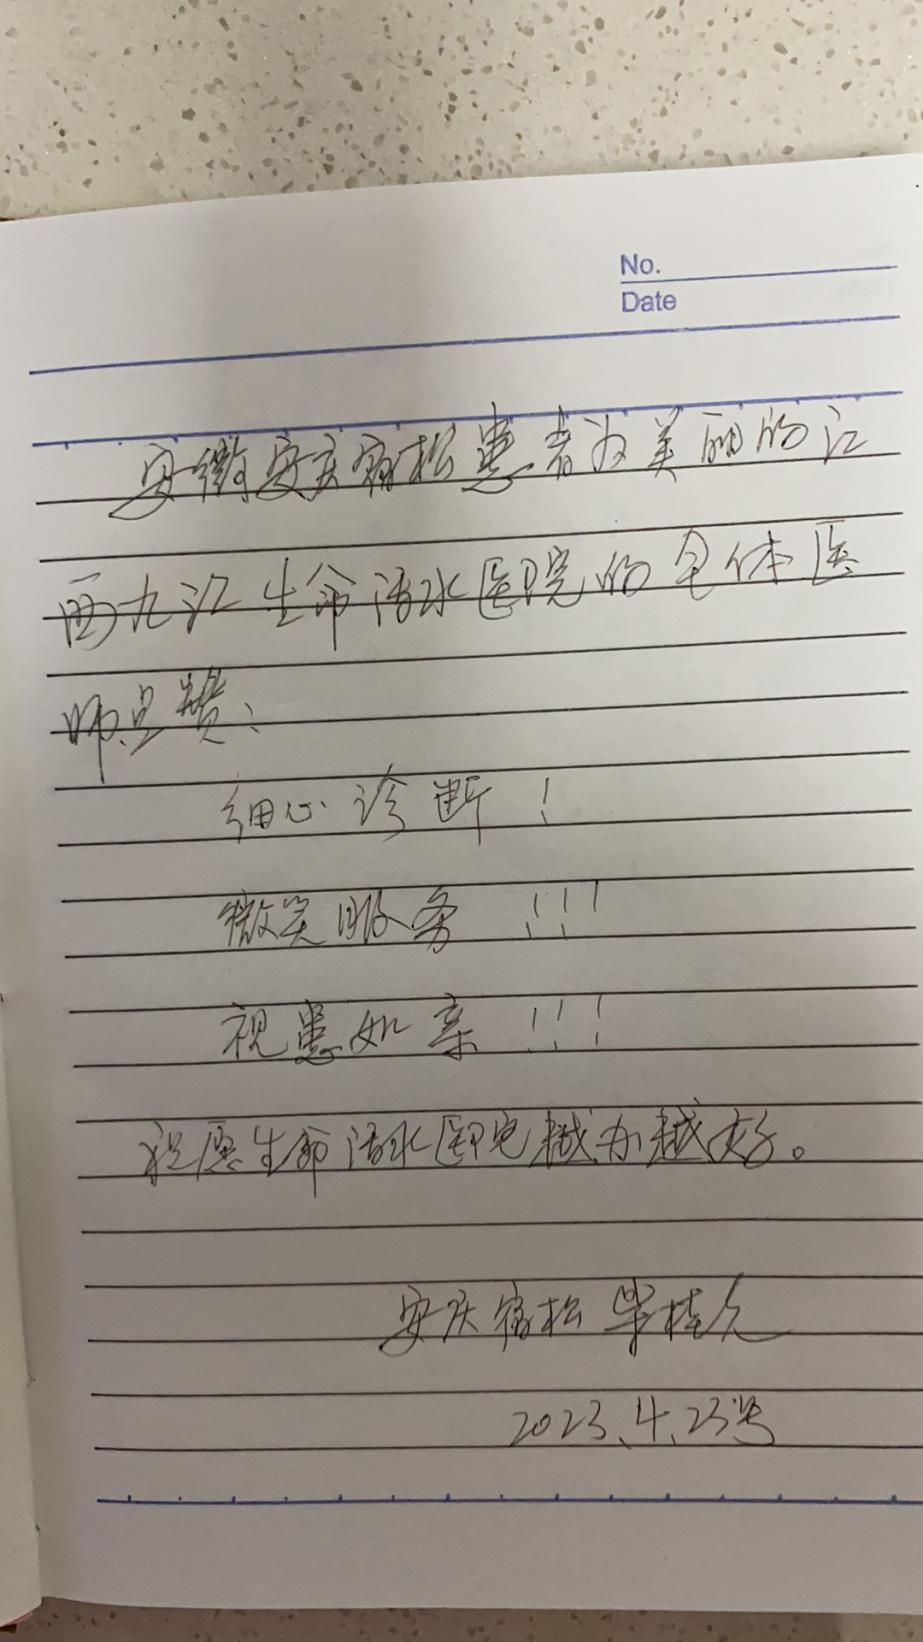 No.
Date
安徽安庆宿松患者为美丽的江
西九江生命活水医院的全体医
师点赞:
细心诊断!
微笑服务!!!
视患如亲!!!
祝愿生命活水医院越办越好。
安庆宿松
2023.4.23号